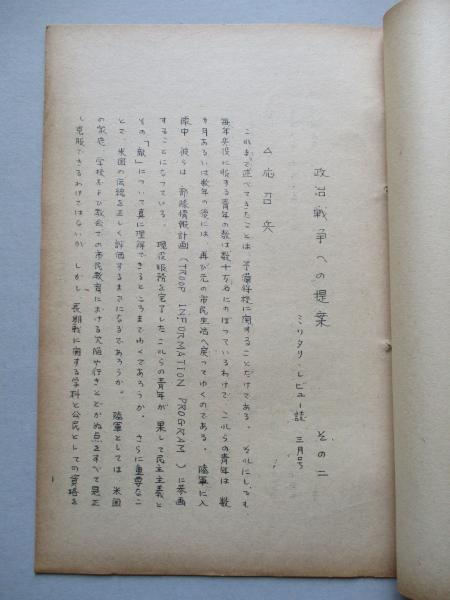 政治戦争への提案 その二
ミリタリ・レビュー誌 三月号
△ 応召兵
これまで述べてきたことは 予備将校に関することだけである。それにしても、
毎年兵役に服する青年の数は数十万名にのぼっているわけで、これらの青年は 数
ヶ月あるいは数年の後には、再び元の市民生活へ戻ってゆくのである。陸軍に入
隊中 彼らは 部隊情報計画(TROOP INFORMATION PROGRAM)に参画
することになっている。現役服務を完了したこれらの青年が 果して民主主義と
その「敵」について真に理解できるところまでゆくであろうか。さらに重要なこ
とで、米国の伝統を正しく評価するまでになるであろうか。陸軍としては 米国
の家庭、学校および教会での市民教育における欠陥や行きとどかぬ点をすべて是正
し克服できるわけではないが、しかし 長期戦に関する学科と公民としての資格を
1